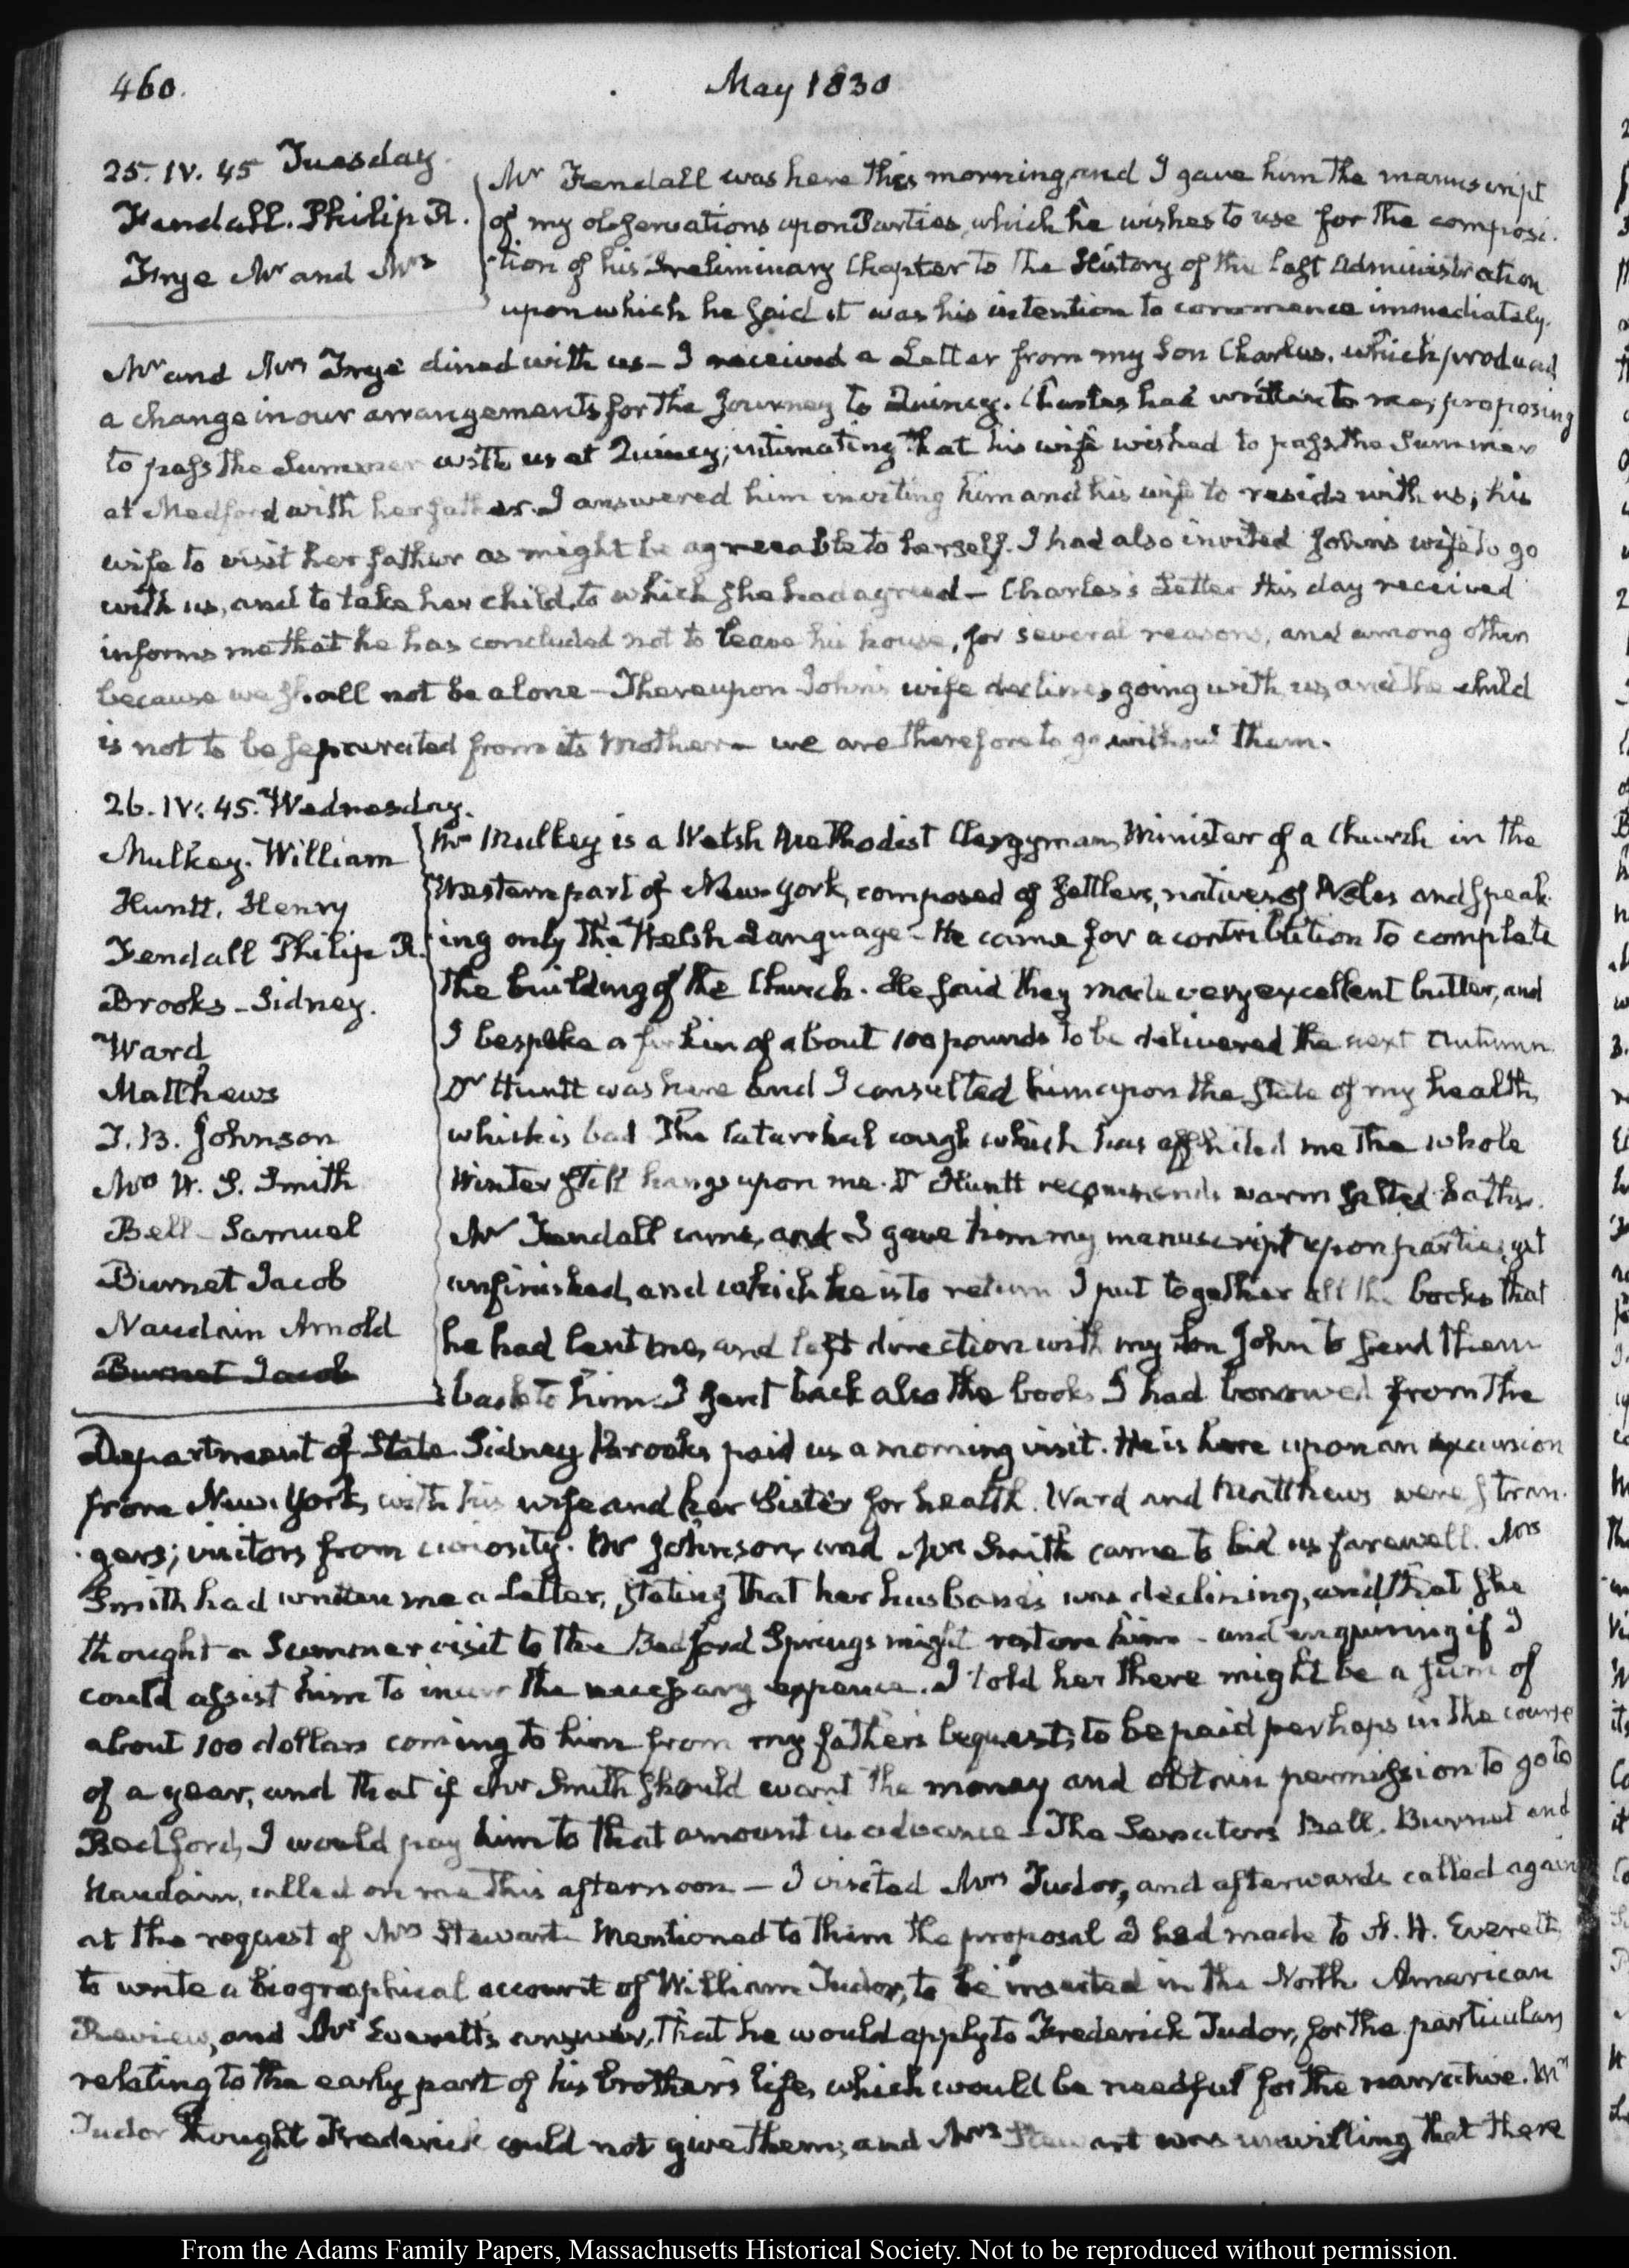 460.
May 1830
25. IV. 45 Tuesday.
Fendall. Philip R.
Frye Mr and Mrs
Mr Fendall was here this morning, and I gave him the manuscript
of my observations upon Parties, which he wishes to use for the composi-
tion of his Preliminary Chapter to the History of the last Administration
upon which he said it was his intention to commence immediately.
Mr and Mrs Frye dined with us – I received a Letter from my Son Charles, which produced
a change in our arrangements for the journey to Quincy. Charles had written to me, proposing
to pass the Summer with us at Quincy; intimating that his wife wished to pass the Summer
at Medford with her father. I answered him inviting him and his wife to reside with us; his
wife to visit her father as might be agreeable to herself. I had also invited John's wife to go
with us, and to take her child, to which she had agreed – Charles's Letter this day received
informs me that he has concluded not to leave his house, for several reasons, and among others
because we shall not be alone – Thereupon John's wife declines going with us, and the child
is not to be separated from its Mother – we are therefore to go without them.
26. IV. 45. Wednesday.
Mulkey. William
Huntt. Henry
Fendall Philip R.
Brooks – Sidney.
Ward
Matthews
J. B. Johnson
Mrs W. S. Smith
Bell – Samuel
Burnet Jacob
Naudain Arnold
Burnet Jacob
Mr Mulkey is a Welsh Methodist Clergyman, Minister of a Church in the
Western part of New-York, composed of settlers, natives of Wales and speak-
ing only the Welsh Language – He came for a contribution to complete
the building of the Church. He said they made very excellent butter, and
I bespoke a firkin of about 100 pounds to be delivered the next Autumn.
Dr Huntt was here and I consulted him upon the state of my health,
which is bad The Catarrhal cough which has afflicted me the whole
Winter still hangs upon me. Dr Huntt recommends warm salted baths.
Mr Fendall came, and I gave him my manuscript upon parties, yet
unfinished, and which he is to return I put together all the books that
he had lent me, and left direction with my Son John to send them
back to him. I sent back also the books I had borrowed from the
Department of State. Sidney Brooks paid us a morning visit. He is here upon an excursion
from New-York, with his wife and her Sister for health. Ward and Matthews were stran-
gers; visitors from curiosity. Mr Johnson, and Mrs Smith came to bid us farewell. Mrs
Smith had written me a letter, stating that her husband's was declining, and that she
thought a Summer visit to the Bedford Springs might restore him – and enquiring if I
could assist him to incur the necessary expence. I told her there might be a sum of
about 100 dollars coming to him from my father's bequests, to be paid perhaps in the course
of a year, and that if Mr Smith should want the money and obtain permission to go to
Bedford, I would pay him to that amount in advance – The Senators Bell, Burnet and
Naudain, called on me this afternoon – I visited Mrs Tudor, and afterwards called again
at the request of Mrs Stewart – Mentioned to them the proposal I had made to A. H. Everett
to write a biographical account of William Tudor, to be inserted in the North American
Review, and Mr Everett's answer, that he would apply to Frederick Tudor, for the particulars
relating to the early part of his brother's life, which would be needful for the narrative. Mrs
Tudor thought Frederick could not give them; and Mrs Stewart was unwilling that there
From the Adams Family Papers, Massachusetts Historical Society. Not to be reproduced without permission.